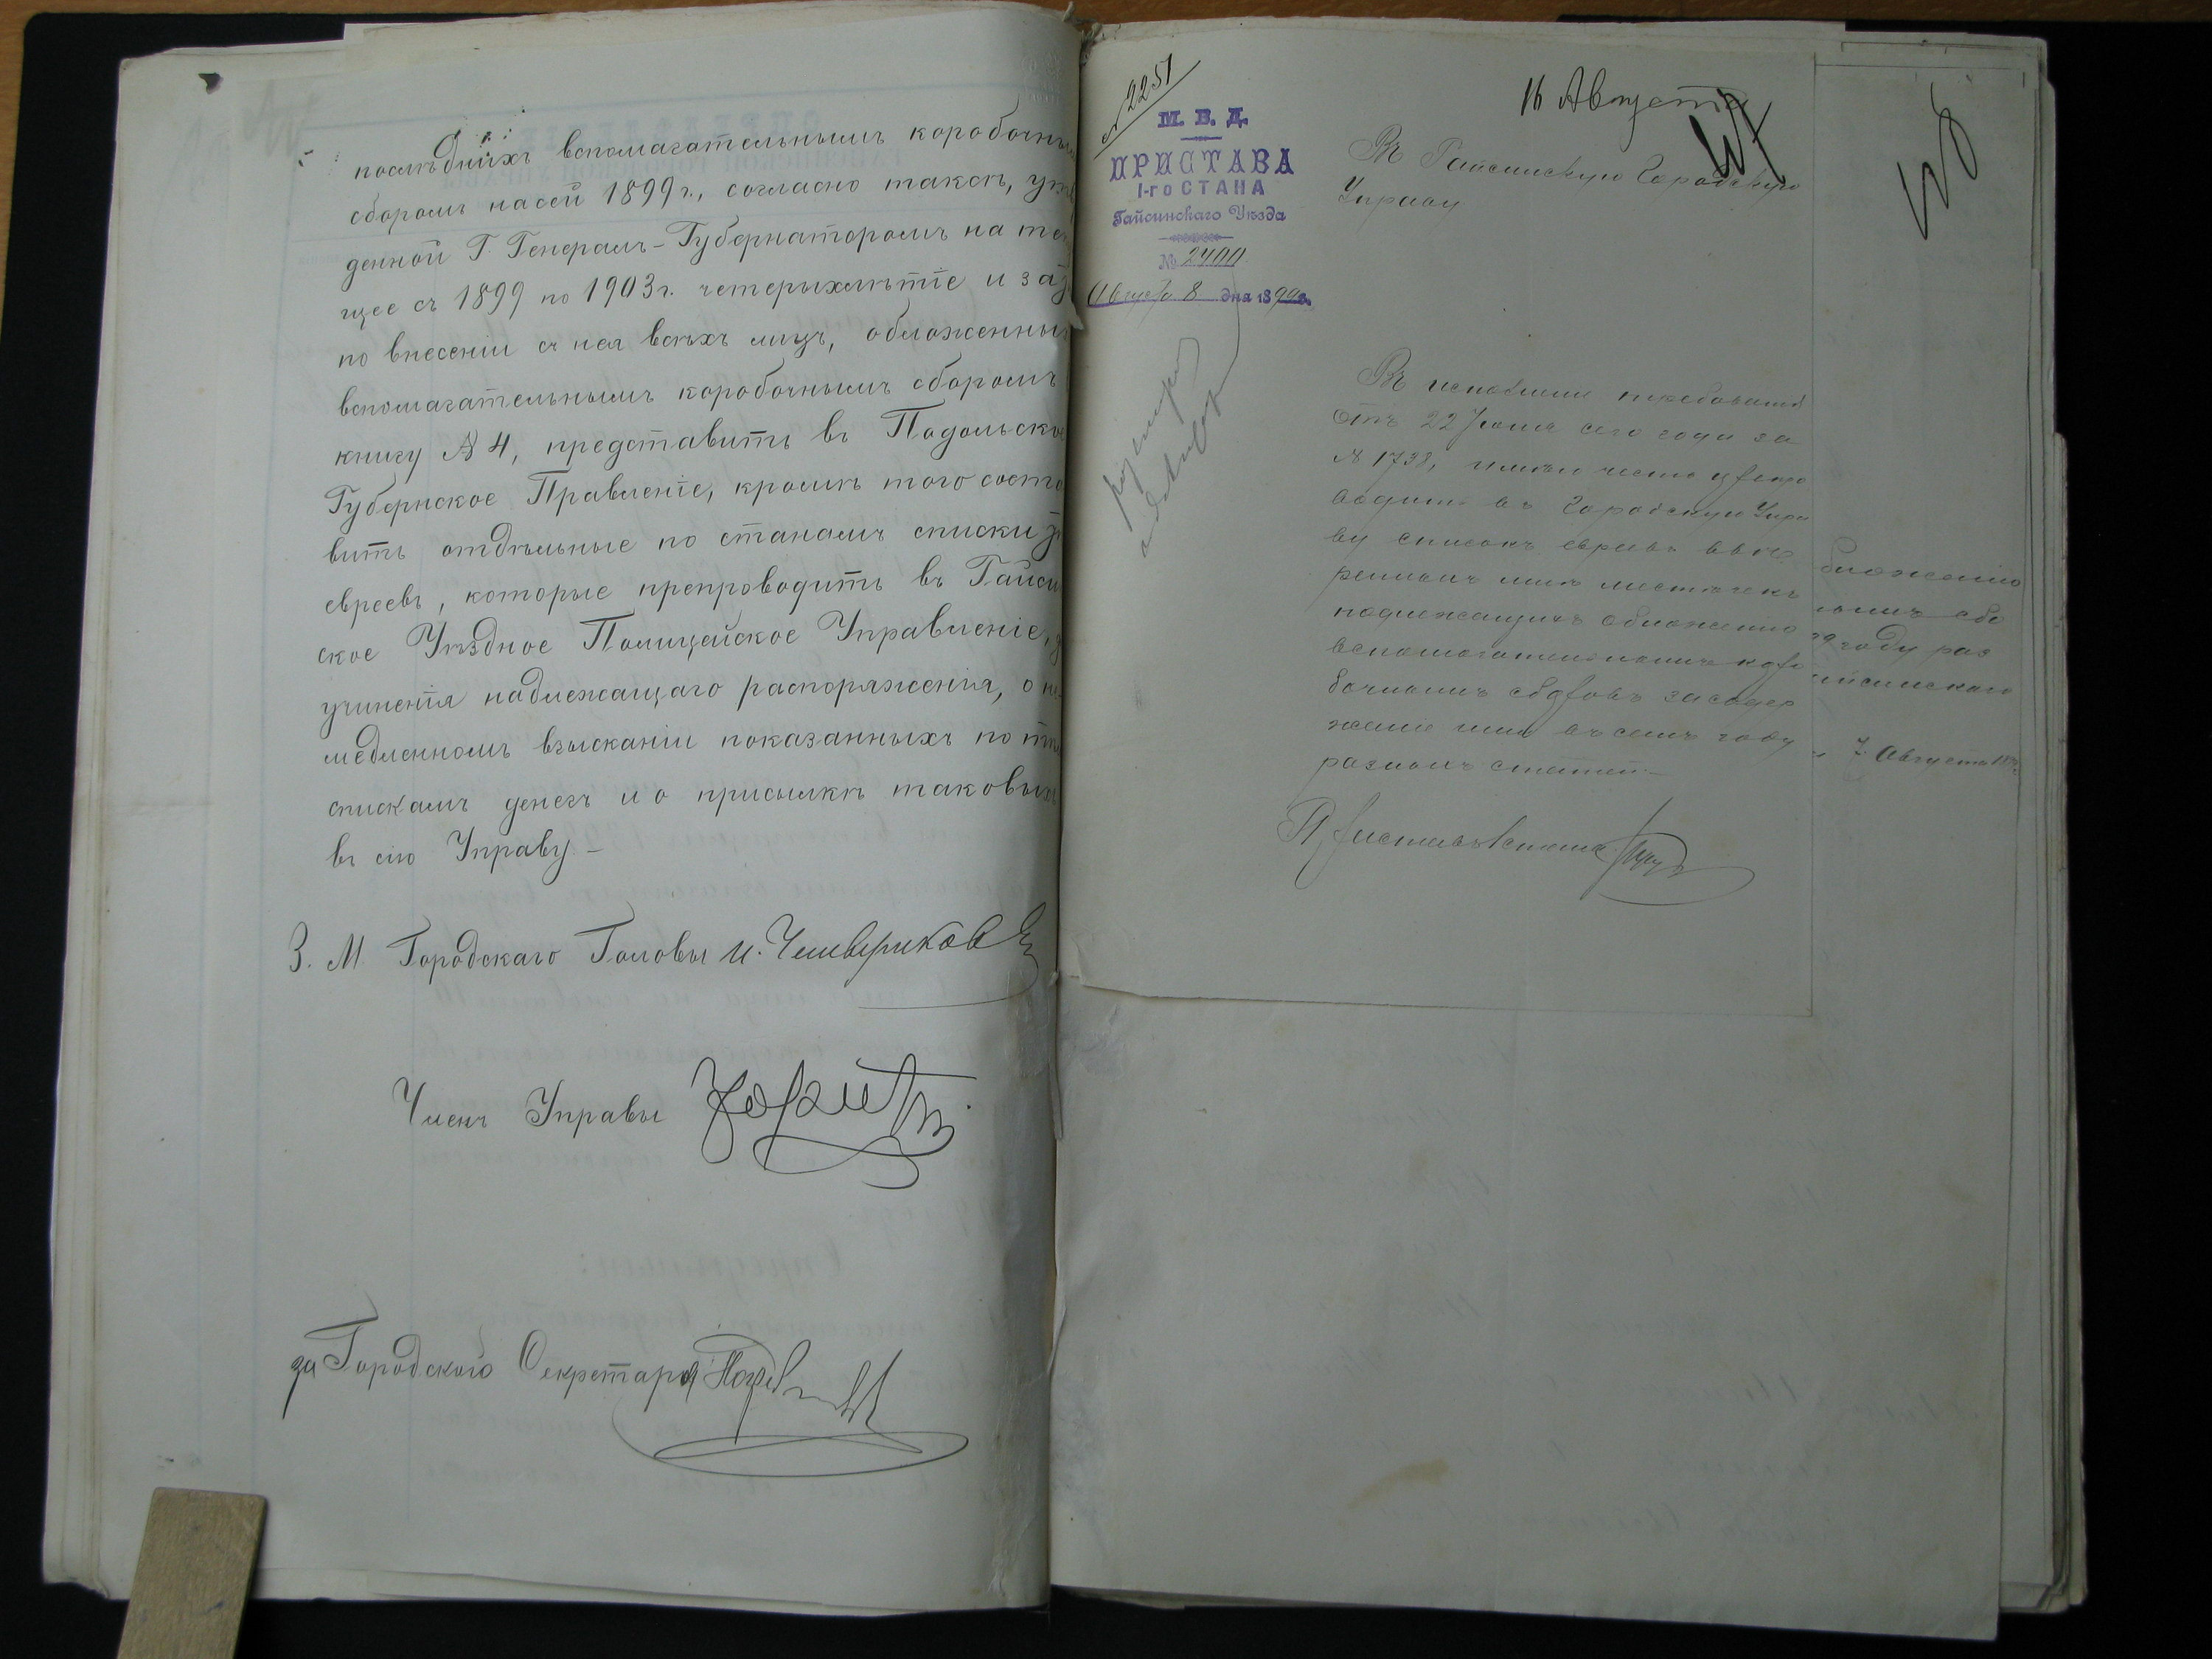 послѣднихъ вспомагательнымъ коробочны
сборомъ на сей 1899 г., согласно таксѣ, утв
денной Г. Генералъ-Губернаторомъ на те
щее съ 1899 по 1903 г. четерыхлѣтіе и за
по внесеніи съ нея всѣхъ лицъ, обложенны
вспомагательнымъ коробочнымъ сборомъ
книгу № 4, представить въ Подольско
Губернское Правленіе, кромѣ того соста
вить отдѣльные по станамъ списки
евреевъ, которые препроводить въ Гайсин
ское Уѣздное Полицейское Управленіе,
учиненія надлежащаго распоряженія, о не
медленномъ взысканіи показанныхъ по
спискамъ денегъ и о присылкѣ таковыхъ
въ сію Управу.—
З. М. Городскаго Головы И. Чемериковъ
Членъ Управы
за Городского Секретаря
№ 2251
М. В. Д.
ПРИСТАВА
1-го СТАНА
Гайсинскаго Уѣзда
№ 2400
Августа 8 дня 1899 г.
16 Августа
Въ Гайсинскую Городскую
Управу
Въ исполненіи требованія
отъ 22 Іюля сего года за
№ 1738, имѣю честь препро
водить въ Городскую Упра
ву списокъ евреевъ ввѣ
ренномъ мнѣ мѣстечекъ
подлежащихъ обложенію
вспомогательнымъ коро
бочнымъ сборовъ за содер
жаніе ими въ семъ году
разныхъ статей.—
Приставъ 1 стана
бложенію
нымъ сбо
99 году раз
айсинскаго
7 Августа 189